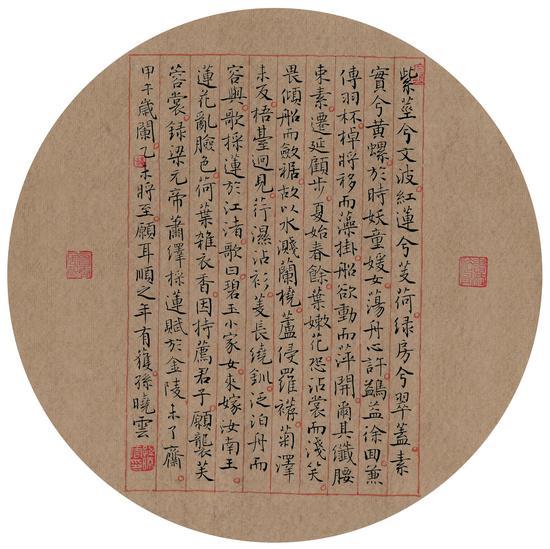 紫莖兮文波紅蓮兮芰荷綠房兮翠蓋素
實兮黃螺於時妖童媛女蕩舟心許鷁徐回兼
傳羽杯棹將移而藻掛船欲動而萍開爾其纖腰
束素遷延顧步夏始春餘葉嫩花恐沾裳而淺笑
畏傾船而斂裾故以水濺蘭橈蘆侵羅菊澤
未反梧臺迥見荇濕沾衫菱長繞釧泛泊舟而
容與歌採蓮於江渚歌曰碧玉小家女來嫁汝南王
蓮花亂臉色荷葉雜衣香因持薦君子願襲芙
蓉裳録梁元帝蕭繹採蓮賦於金陵未了齋
甲午歲闌乙未將至願耳順之年有獲孫曉雲